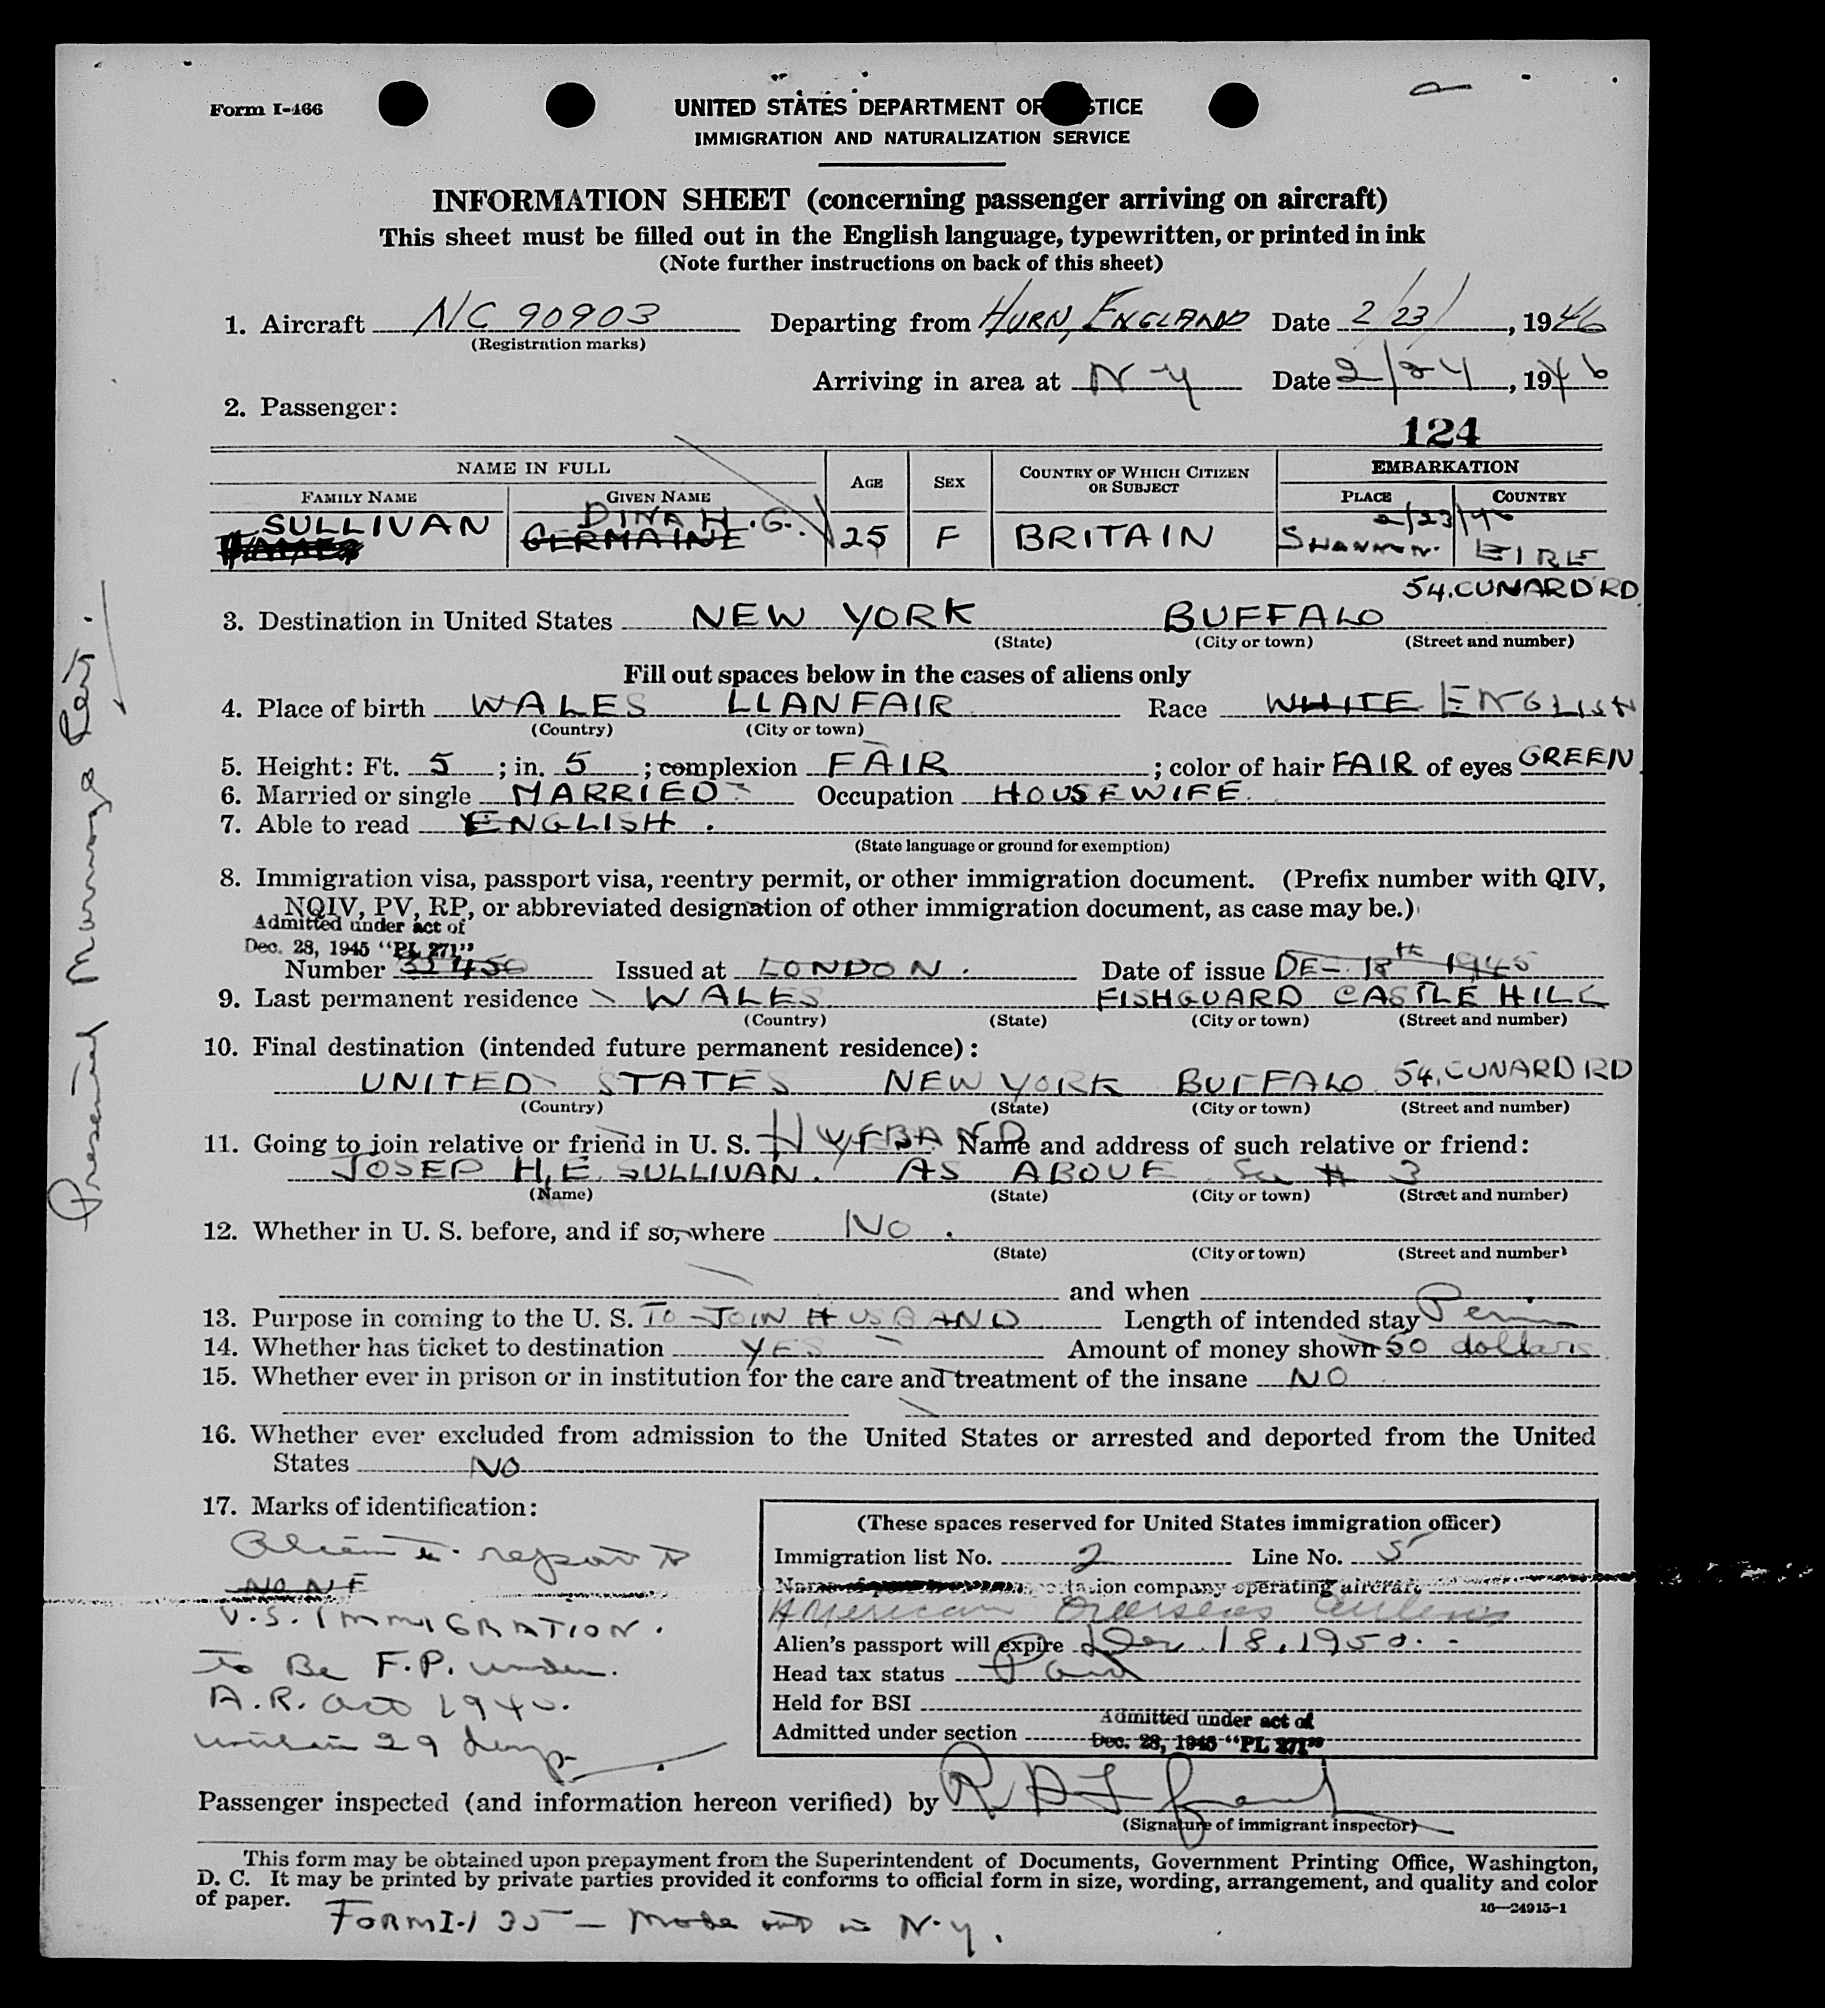 Form I-466
UNITED STATES DEPARTMENT OF STICE
IMMIGRATION AND NATURALIZATION SERVICE
INFORMATION SHEET (concerning passenger arriving on aircraft)
This sheet must be filled out in the English language, typewritten, or printed in ink
(Note further instructions on back of this sheet)
1. Aircraft NC 90903 Departing from HURN, ENGLAND Date 2/23/, 1946
(Registration marks)
Arriving in area at N Y Date 2/24, 1946
2. Passenger:
124
NAME IN FULL AGE SEX COUNTRY OF WHICH CITIZEN OR SUBJECT EMBARKATION
FAMILY NAME GIVEN NAME PLACE COUNTRY
SULLIVAN DINA H.G. 2/23/46
GERMAINE 25 F BRITAIN SHANNON. EIRE
54. CUNARD RD.
3. Destination in United States NEW YORK BUFFALO
(State) (City or town) (Street and number)
Fill out spaces below in the cases of aliens only
4. Place of birth WALES LLANFAIR Race WHITE ENGLISH
(Country) (City or town)
5. Height: Ft. 5; in. 5; complexion FAIR; color of hair FAIR of eyes GREEN
6. Married or single MARRIED Occupation HOUSEWIFE.
7. Able to read ENGLISH.
(State language or ground for exemption)
8. Immigration visa, passport visa, reentry permit, or other immigration document. (Prefix number with QIV,
NQIV, PV, RP, or abbreviated designation of other immigration document, as case may be.)
Admitted under act of
Dec. 28, 1945 "PL 271"
Number 32450 Issued at LONDON. Date of issue DEC. 18th 1945
9. Last permanent residence WALES FISHGUARD CASTLE HILL
(Country) (State) (City or town) (Street and number)
10. Final destination (intended future permanent residence):
UNITED STATES NEW YORK BUFFALO 54, CUNARD RD
(Country) (State) (City or town) (Street and number)
11. Going to join relative or friend in U. S. HUSBAND Name and address of such relative or friend:
JOSEP H, E. SULLIVAN. AS ABOVE See # 3
(Name) (State) (City or town) (Street and number)
12. Whether in U. S. before, and if so, where NO.
(State) (City or town) (Street and number)
and when
13. Purpose in coming to the U. S. TO JOIN HUSBAND Length of intended stay Perm
14. Whether has ticket to destination YES Amount of money shown 50 dollars
15. Whether ever in prison or in institution for the care and treatment of the insane NO
16. Whether ever excluded from admission to the United States or arrested and deported from the United
States NO
17. Marks of identification:
Alien to report to
NONE
U.S. IMMIGRATION.
To Be F.P. under
A.R. act 1940.
within 29 days
(These spaces reserved for United States immigration officer)
Immigration list No. 2 Line No. 5
Name of transportation company operating aircraft
American Overseas Airlines
Alien's passport will expire Dec. 18, 1950.
Head tax status Paid
Held for BSI
Admitted under section Admitted under act of
Dec. 28, 1945 "PL 271"
Passenger inspected (and information hereon verified) by
(Signature of immigrant inspector)
This form may be obtained upon prepayment from the Superintendent of Documents, Government Printing Office, Washington,
D. C. It may be printed by private parties provided it conforms to official form in size, wording, arrangement, and quality and color
of paper.
16—24915-1
FORM I-135 — Made out in N.Y.
Presented Marriage Cert.